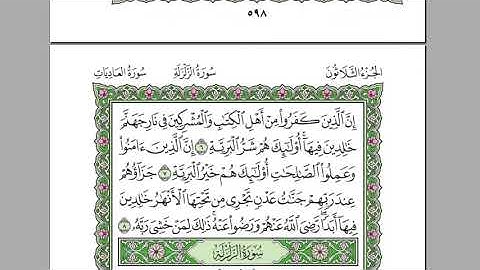 ٥٩٨
الجزء الثلاثون سورة الزلزلة سورة العاديات
إِنَّ الَّذِينَ كَفَرُوا مِنْ أَهْلِ الْكِتَٰبِ وَالْمُشْرِكِينَ فِي نَارِ جَهَنَّمَ
خَٰلِدِينَ فِيهَا أُو۟لَٰٓئِكَ هُمْ شَرُّ الْبَرِيَّةِ ٦ إِنَّ الَّذِينَ ءَامَنُوا
وَعَمِلُوا الصَّٰلِحَٰتِ أُو۟لَٰٓئِكَ هُمْ خَيْرُ الْبَرِيَّةِ ٧ جَزَآؤُهُمْ
عِندَ رَبِّهِمْ جَنَّٰتُ عَدْنٍ تَجْرِي مِن تَحْتِهَا الْأَنْهَٰرُ خَٰلِدِينَ
فِيهَآ أَبَدًا رَّضِيَ اللَّهُ عَنْهُمْ وَرَضُوا عَنْهُ ذَٰلِكَ لِمَنْ خَشِيَ رَبَّهُۥ ٨
سُورَةُ الزَّلْزَلَةِ